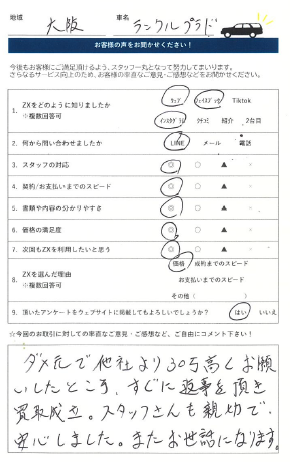 地域 大阪 車名 ランクルプラド
お客様の声をお聞かせください！
今後もお客様にご満足頂けるよう、スタッフ一丸となって努力してまいります。
さらなるサービス向上のため、お客様の率直なご意見・ご感想などをお聞かせください。
1. ZXをどのように知りましたか ※複数回答可
ウェブ フェイスブック Tiktok
インスタグラム クチコミ 紹介 2台目
2. 何から問い合わせましたか LINE メール 電話
3. スタッフの対応 ◎ ○ ▲ ×
4. 契約/お支払いまでのスピード ◎ ○ ▲ ×
5. 書類や内容の分かりやすさ ◎ ○ ▲ ×
6. 価格の満足度 ◎ ○ ▲ ×
7. 次回もZXを利用したいと思う ◎ ○ ▲ ×
8. ZXを選んだ理由 ※複数回答可
価格 成約までのスピード
お支払いまでのスピード
その他（ ）
9. 頂いたアンケートをウェブサイトに掲載してもよろしいでしょうか？ はい いいえ
☆今回のお取引に対しての率直なご意見・ご感想など、ご自由にコメント下さい！
ダメ元で他社より30万高くお願
いしたところ、すぐに返事を頂き
買取成立。スタッフさんも親切で、
安心しました。またお世話になります。